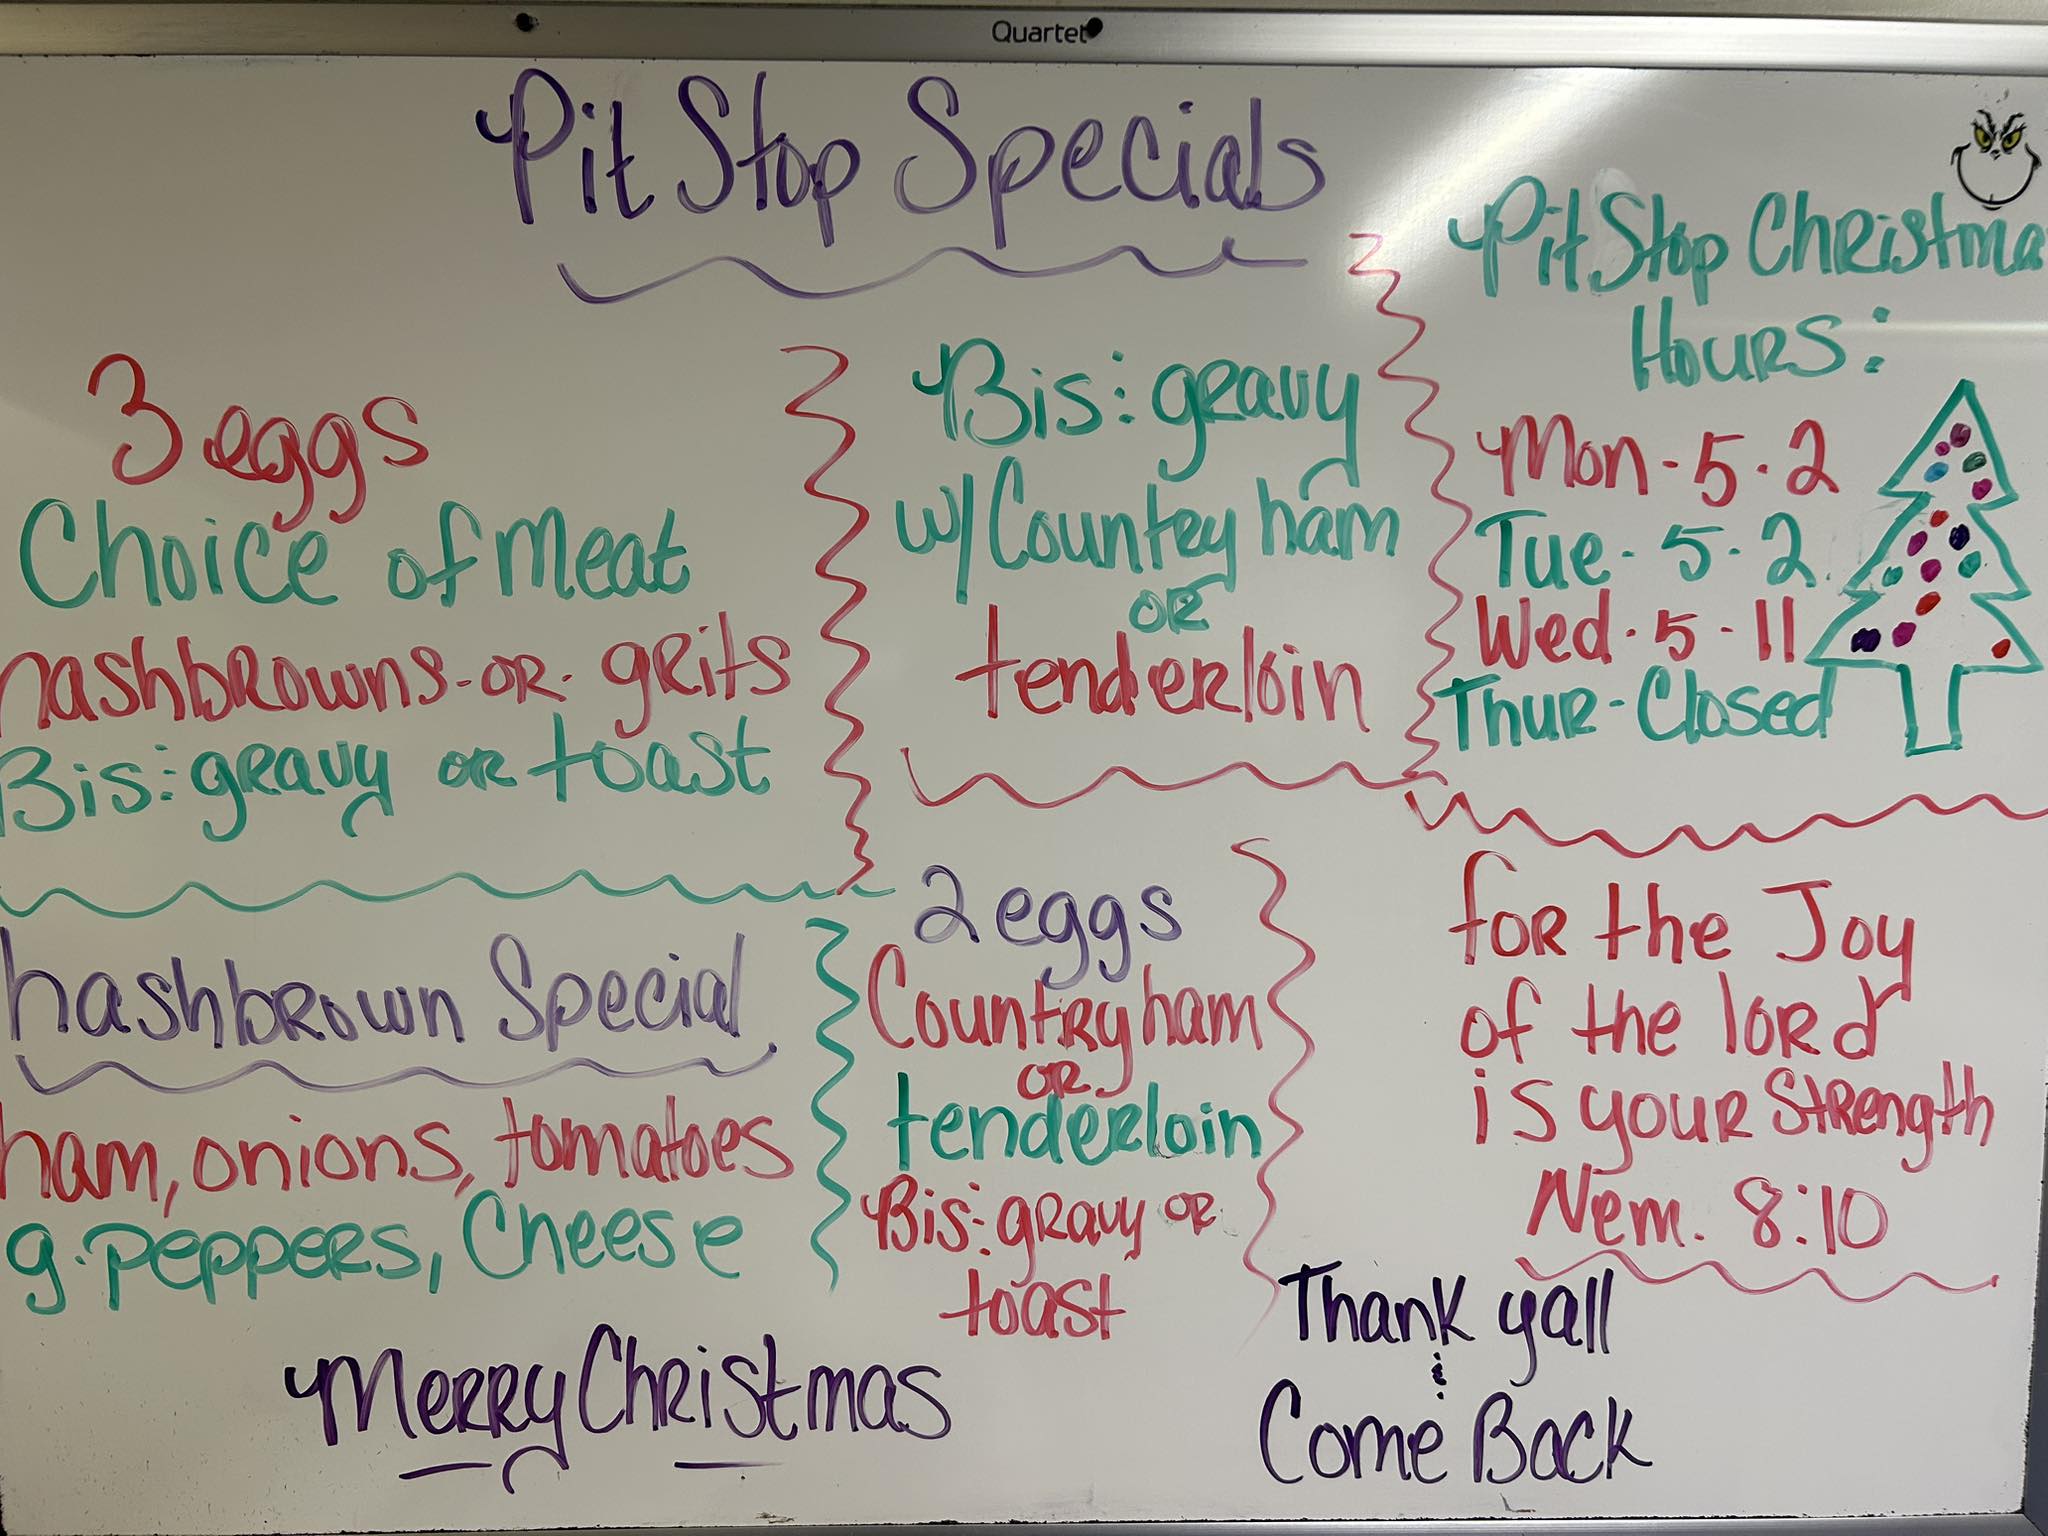 Quartet
Pit Stop Specials
3 eggs
Choice of meat
hashbrowns-or-grits
Bis: gravy or toast
Bis: gravy
w/Country ham
or
tenderloin
Pit Stop Christma
Hours:
Mon-5-2
Tue-5-2
Wed-5-11
Thur-Closed
hashbrown Special
ham, onions, tomatoes
g.peppers, Cheese
2 eggs
Country ham
or
tenderloin
Bis: gravy or
toast
for the Joy
of the lord
is your Strength
Nem. 8:10
Merry Christmas
Thank yall
Come Back